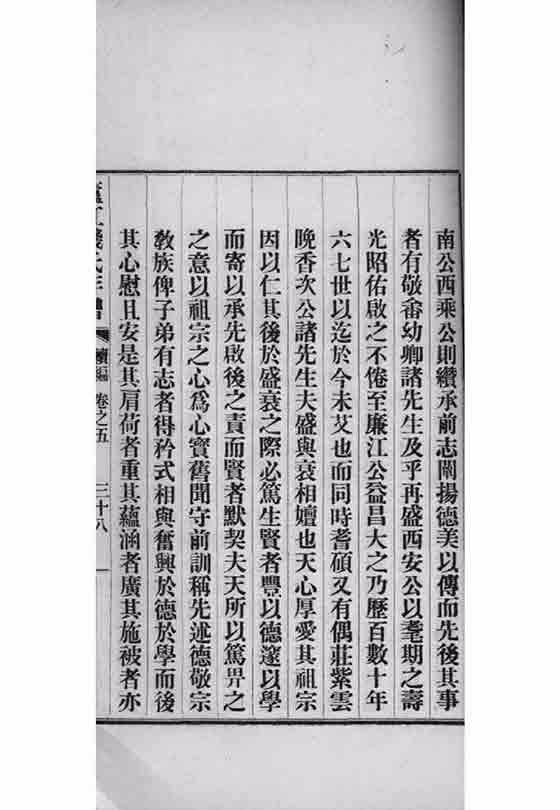 南公西乘公則纘承前志闡揚德美以傳而先後其事
者有敬畬幼卿諸先生及乎再盛西安公以耄期之壽
光昭佑啟之不倦至廉江公益昌大之乃歷百數十年
六七世以迄於今未艾也而同時耆碩又有偶莊紫雲
晚香次公諸先生夫盛與衰相嬗也天心厚愛其祖宗
因以仁其後於盛衰之際必篤生賢者豐以德邃以學
而寄以承先啟後之責而賢者默契夫天所以篤畀之
之意以祖宗之心爲心寳舊聞守前訓稱先述德敬宗
教族俾子弟有志者得矜式相與奮興於德於學而後
其心慰且安是其肩荷者重其蘊涵者廣其施被者亦
錢氏 續編 卷之五 三十八